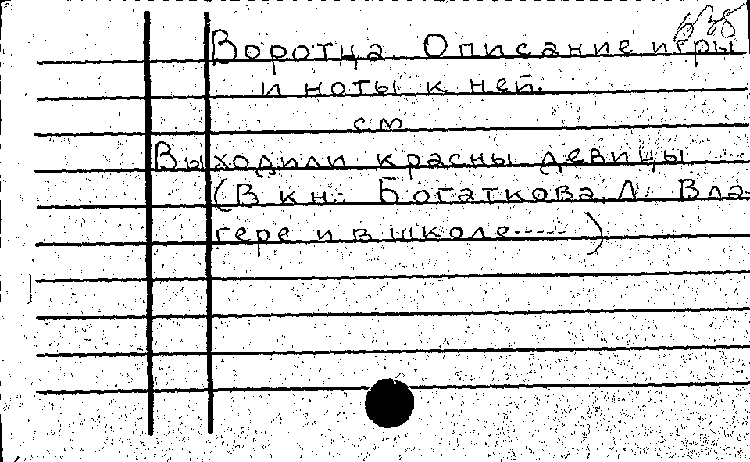 Воротца. Описание игры
и ноты к ней.
см
Выходили красны девицы
(В кн.: Богаткова, Л. В ла-
гере и в школе.....)